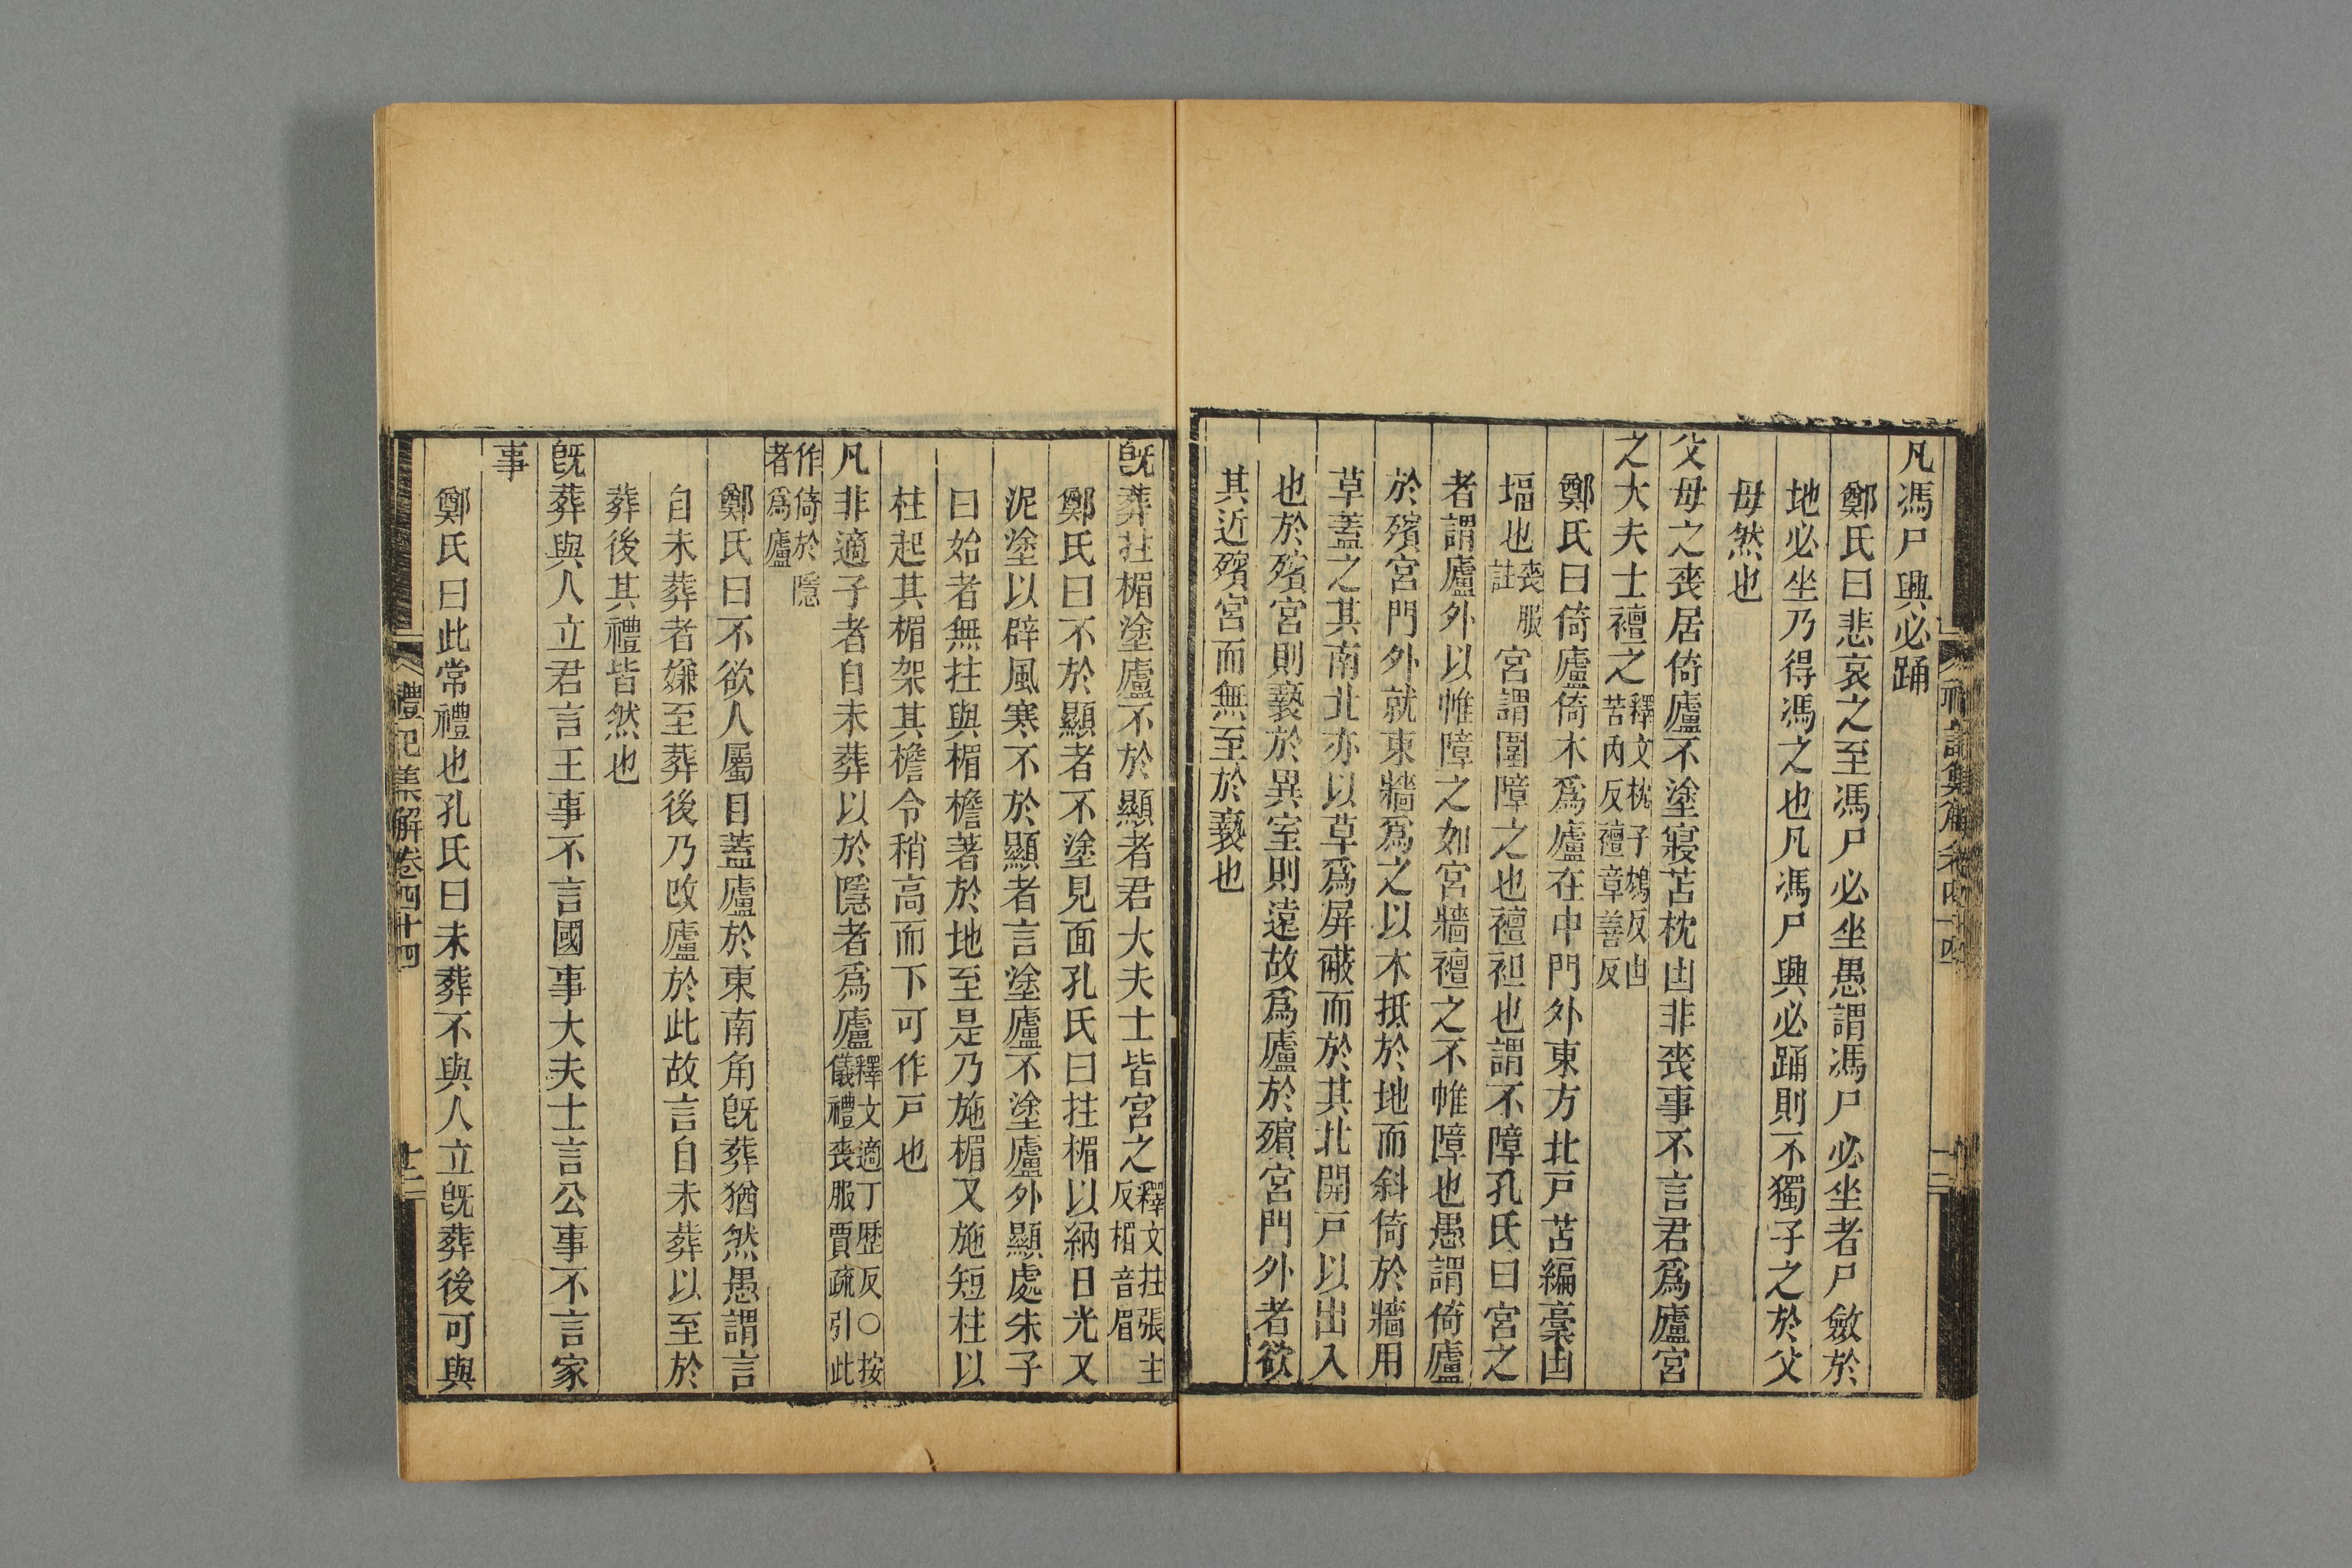 凡馮尸興必踊
鄭氏曰悲哀之至馮尸必坐愚謂馮尸必坐者尸斂於
地必坐乃得馮之也凡馮尸興必踊則不獨子之於父
母然也
父母之喪居倚廬不塗寢苫枕凷非喪事不言君爲廬宮
之大夫士襢之釋文枕子鴆反凷
苦內反襢章善反
鄭氏曰倚廬倚木爲廬在中門外東方北戸苫編藁凷
堛也喪服
註宮謂圍障之也襢袒也謂不障孔氏曰宮之
者謂廬外以帷障之如宮牆襢之不帷障也愚謂倚廬
於殯宮門外就東牆爲之以木抵於地而斜倚於牆用
草蓋之其南北亦以草爲屏蔽而於其北開戸以出入
也於殯宮則褻於異室則遠故爲廬於殯宮門外者欲
其近殯宮而無至於褻也
既葬拄楣塗廬不於顯者君大夫士皆宮之釋文拄張主
反楣音眉
鄭氏曰不於顯者不塗見面孔氏曰拄楣以納日光又
泥塗以辟風寒不於顯者言塗廬不塗廬外顯處朱子
曰始者無拄與楣檐著於地至是乃施楣又施短柱以
柱起其楣架其檐令稍高而下可作戸也
凡非適子者自未葬以於隱者爲廬釋文適丁歷反○按
儀禮喪服賈疏引此
作倚於隱
者爲廬
鄭氏曰不欲人屬目蓋廬於東南角旣葬猶然愚謂言
自未葬者嫌至葬後乃改廬於此故言自未葬以至於
葬後其禮皆然也
旣葬與人立君言王事不言國事大夫士言公事不言家
事
鄭氏曰此常禮也孔氏曰未葬不與人立旣葬後可與
禮記集解卷四十四
十二